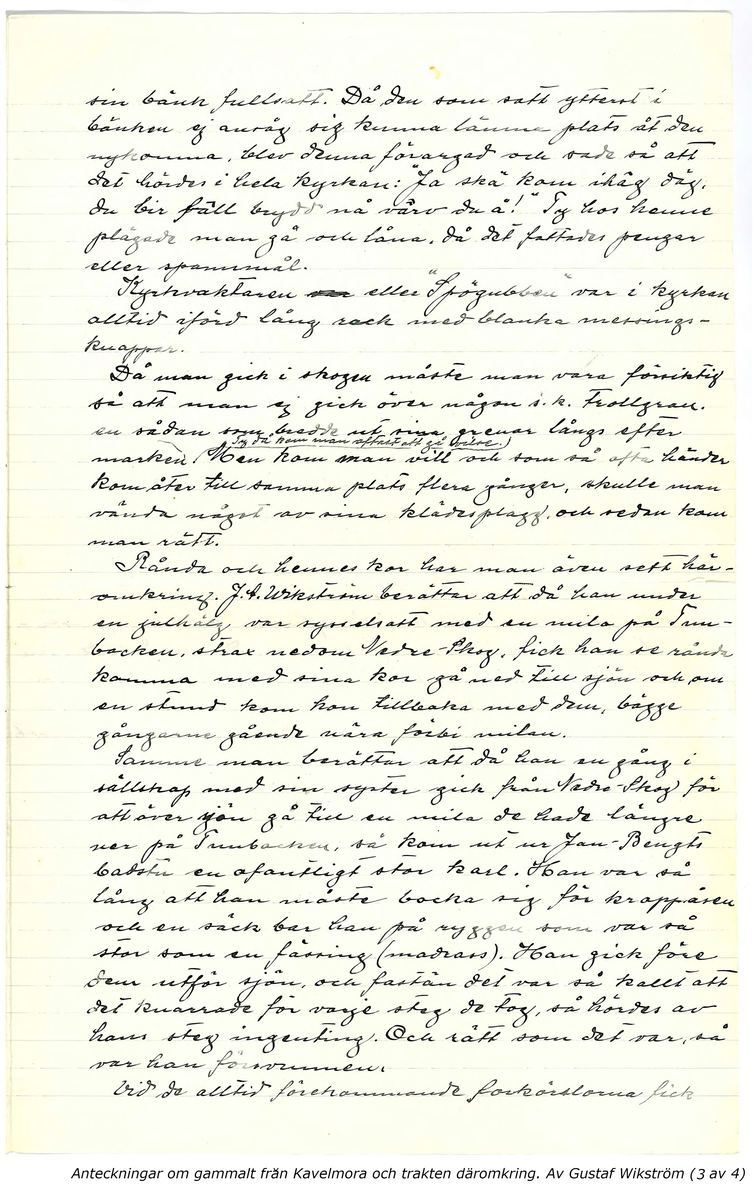 sin bänk fullsatt. Då den som satt ytterst i
bänken ej ansåg sig kunna lämna plats åt den
nykomna, blev denna förargad och sade så att
det hördes i hela kyrkan: "Ja skä kom ihåg däg,
du bir fäll brydd nå värv du å!" Ty hos henne
plägade man gå och låna, då det fattades pengar
eller spannmål.
Kyrkvaktaren eller "Spögubben" var i kyrkan
alltid iförd lång rock med blanka messings-
knappar.
Då man gick i skogen måste man vara försiktig
så att man ej gick över någon s.k. Trollgran.
en sådan som bredde ut sina grenar långs efter
Ty då kom man oftast att gå vilse.)
marken (Men kom man vill och som så ofta händer
kom åter till samma plats flera gånger, skulle man
vända något av sina klädesplagg, och sedan kom
man rätt.
Rånda och hennes kor har man även sett här-
omkring. J.A. Wikström berättar att då han under
en julhälg var sysselsatt med en mila på Tun-
backen, strax nedom Nedre-Skog, fick han se rånda
komma med sina kor gå ned till sjön och om
en stund kom hon tillbaka med dem, bägge
gångarne gående nära förbi milan.
Samme man berättar att då han en gång i
sällskap med sin syster gick från Nedre-Skog för
att över sjön gå till en mila de hade längre
ner på Tunbacken, så kom ut ur Jan-Bengts
badstu en ofantligt stor karl. Han var så
lång att han måste bocka sig för kroppåsen
och en säck bar han på ryggen som var så
stor som en fässing (madrass). Han gick före
dem utför sjön, och fastän det var så kallt att
det knarrade för varje steg de tog, så hördes av
hans steg ingenting. Och rätt som det var, så
var han försvunnen.
Vid de alltid förekommande forkörslorna fick
Anteckningar om gammalt från Kavelmora och trakten däromkring. Av Gustaf Wikström (3 av 4)